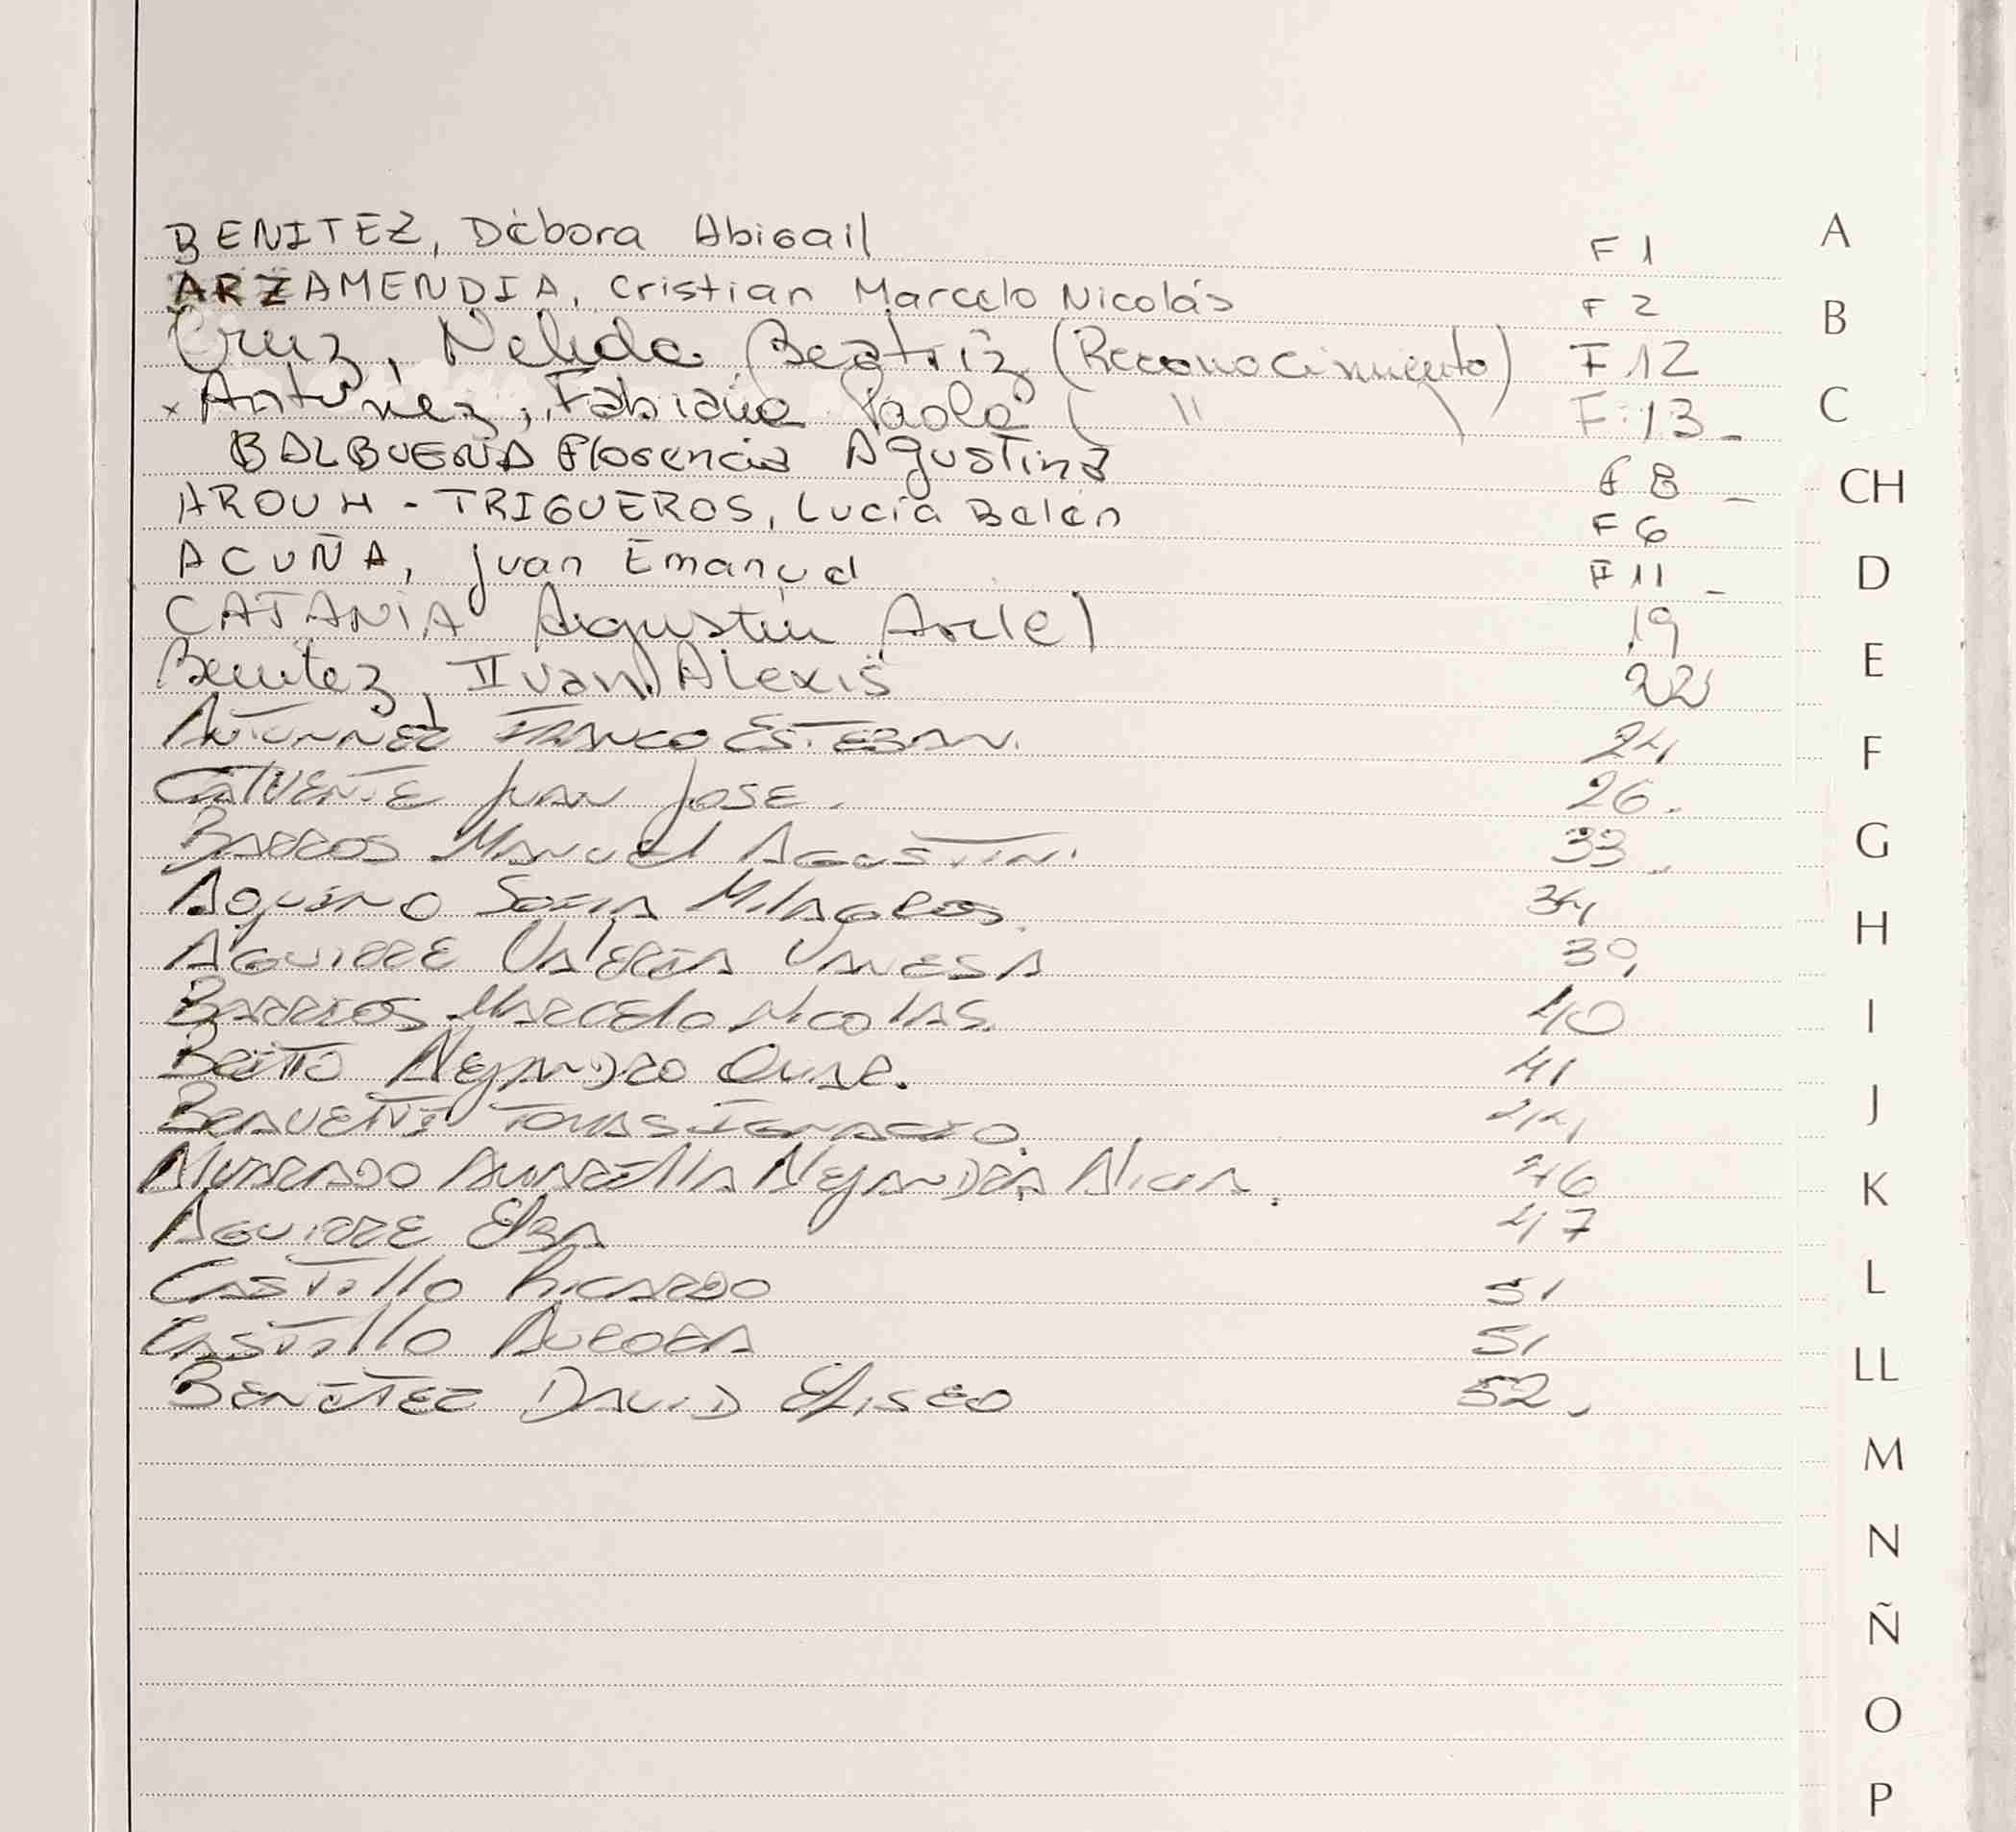 BENITEZ, Débora Abigail F 1 A
ARZAMENDIA, Cristian Marcelo Nicolás F 2 B
Cruz, Nelida Beatriz (Reconocimiento) F 12
x Antúnez, Fabiana Paola ( " ) F. 13 - C
BALBUENA Florencia Agustina F 8 - CH
AROUH - TRIGUEROS, Lucía Belén F 6
ACUÑA, Juan Emanuel F 11 - D
CATANIA Agustin Ariel 19
Benitez, Ivan Alexis 22 E
ANTUNNEZ FRANCO ESTEBAN. 24 F
CALVENTE JUAN JOSE. 26.
BARROS MANUEL AGUSTIN. 33 G
AQUINO SOFIA MILAGROS. 34
AGUIRRE VALERIA VANESA H
BARRIOS MARCELO NICOLAS. 40 I
BRITTO ALEJANDRO OMAR. 41
TOMAS IGNACIO. J
ALEJANDRA ALICIA. 46 K
AGUIRRE ELBA 47
CASTILLO RICARDO 51 L
CASTILLO AURORA 51 LL
BENITEZ DAVID ELISEO 52.
M
N
Ñ
O
P